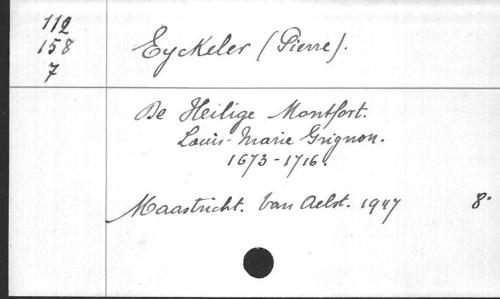 112
158
7
Eyckeler (Pierre).
De Heilige Montfort.
Louis-Marie Grignon.
1673-1716.
Maastricht. Van Aelst. 1947 8°